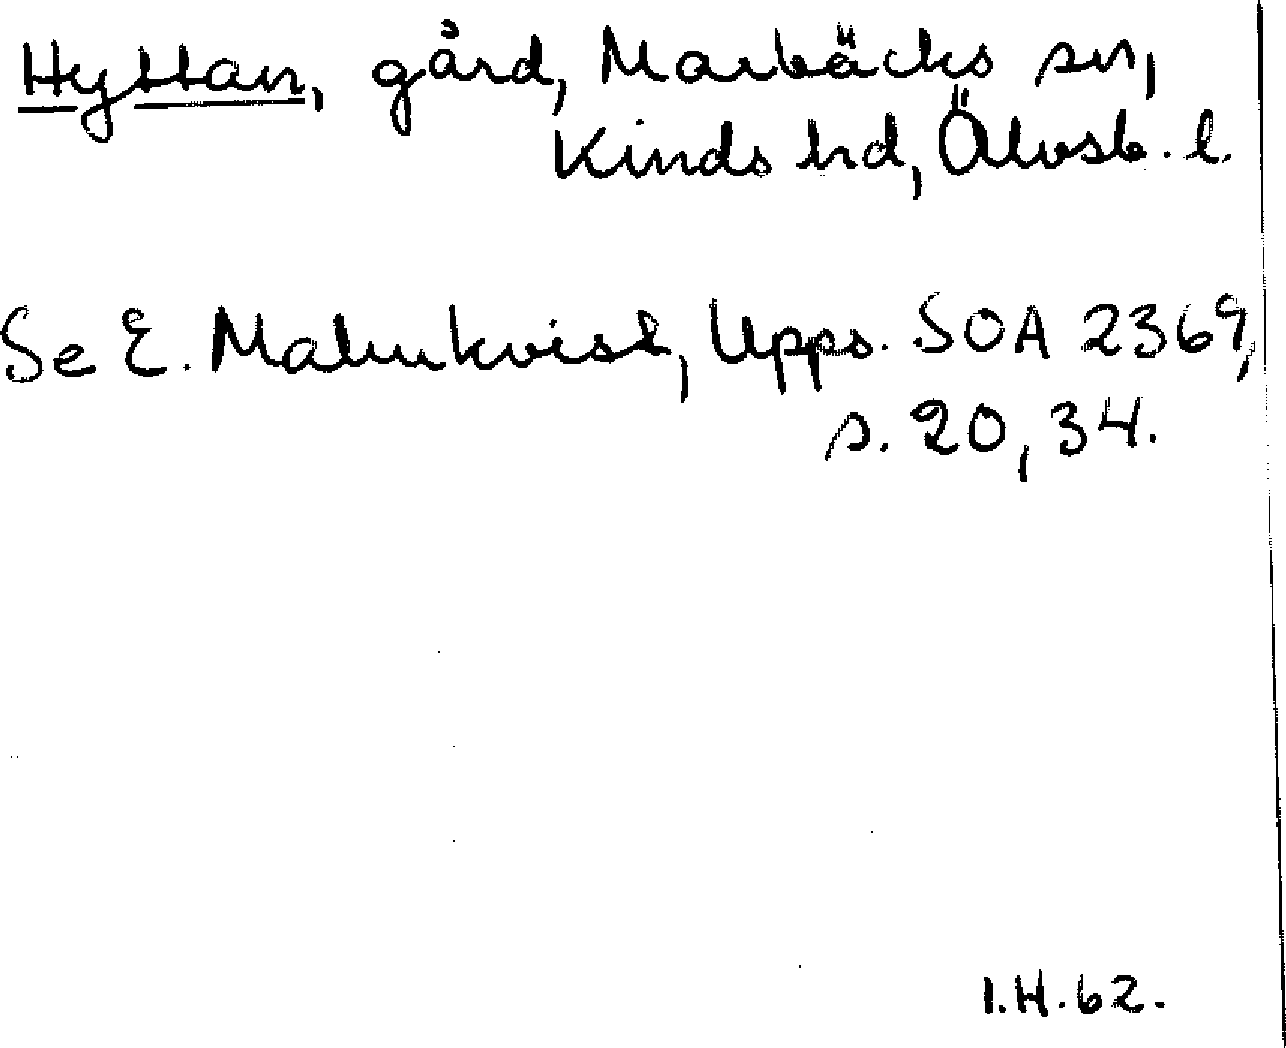 Hyttan, gård, Marbäcks sn,
Kinds hd, Älvsb. l.
Se E. Malmkvist, Upps. SOA 2369,
s. 20, 34.
I.H. 62.